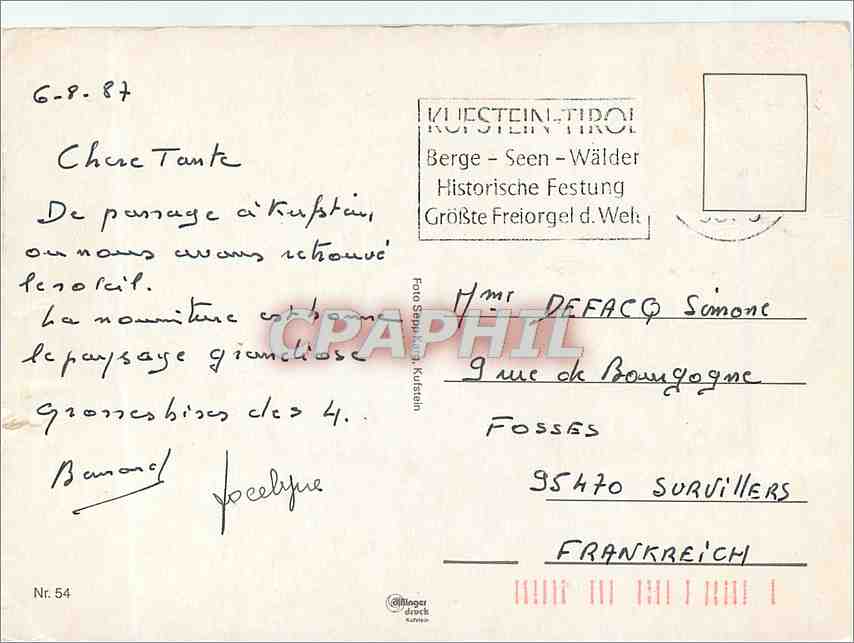 6-8-87
Chere Tante
De passage à Kufstein,
ou nous avons retrouvé
le soleil.
La nourriture est bonne
le paysage grandiose
Grosses bises des 4.
Bernard
Jocelyne
Nr. 54
KUFSTEIN-TIROL
Berge - Seen - Wälder
Historische Festung
Größte Freiorgel d. Welt
Foto Sepp Karg, Kufstein
CPAPHIL
Mme DEFACQ Simone
9 rue de Bourgogne
FOSSES
95470 SURVILLERS
FRANKREICH
druck
Kufstein